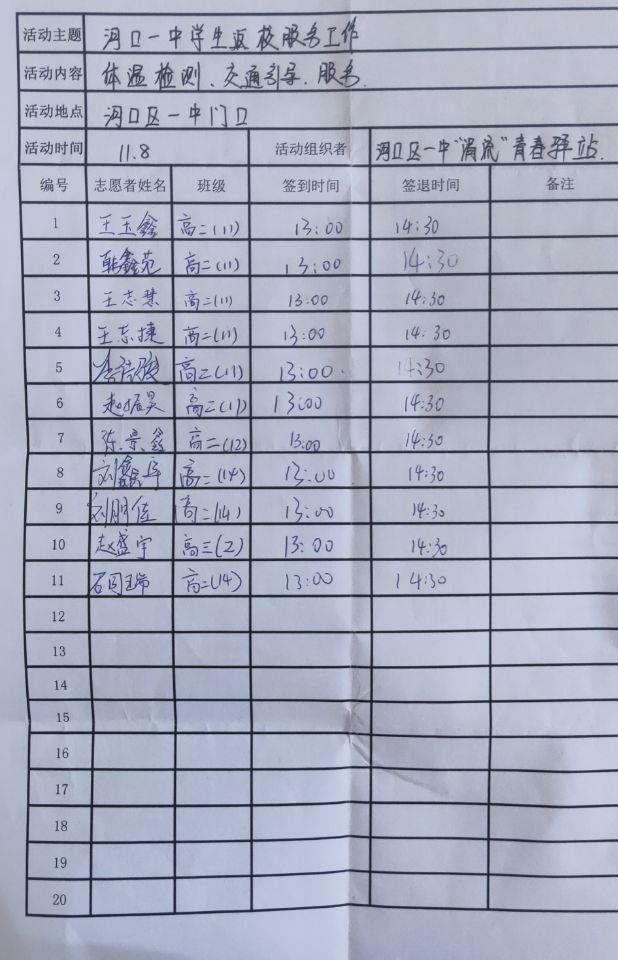 活动主题 河口一中学生返校服务工作
活动内容 体温检测、交通引导、服务.
活动地点 河口区一中门口
活动时间 11.8 活动组织者 河口区一中"涓流"青春驿站.
编号 志愿者姓名 班级 签到时间 签退时间 备注
1 王玉鑫 高二(11) 13:00 14:30
2 韩鑫范 高二(11) 13:00 14:30
3 王志慧 高二(11) 13:00 14:30
4 王志捷 高二(11) 13:00 14:30
5 高二(11) 13:00. 14:30
6 赵振昊 高二(11) 13:00 14:30
7 陈景鑫 高二(12) 13:00 14:30
8 刘鑫 高二(14) 13:00 14:30
9 刘朋佳 高二(14) 13:00 14:30
10 赵盛宇 高三(2) 13:00 14:30
11 石国瑞 高二(14) 13:00 14:30
12
13
14
15
16
17
18
19
20